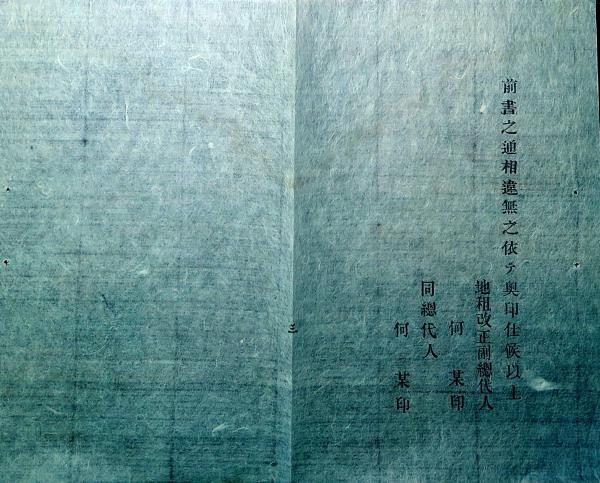 前書之通相違無之依テ奥印仕候以上
地租改正副總代人
何某印
同總代人
何某印
三